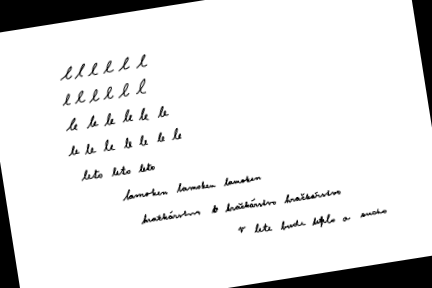 l l l l l l
l l l l l l
le le le le le le
le le le le le le le
leto leto leto
lamoken lamoken lamoken
hračkárstvo hračkárstvo hračkárstvo
V lete bude teplo a sucho